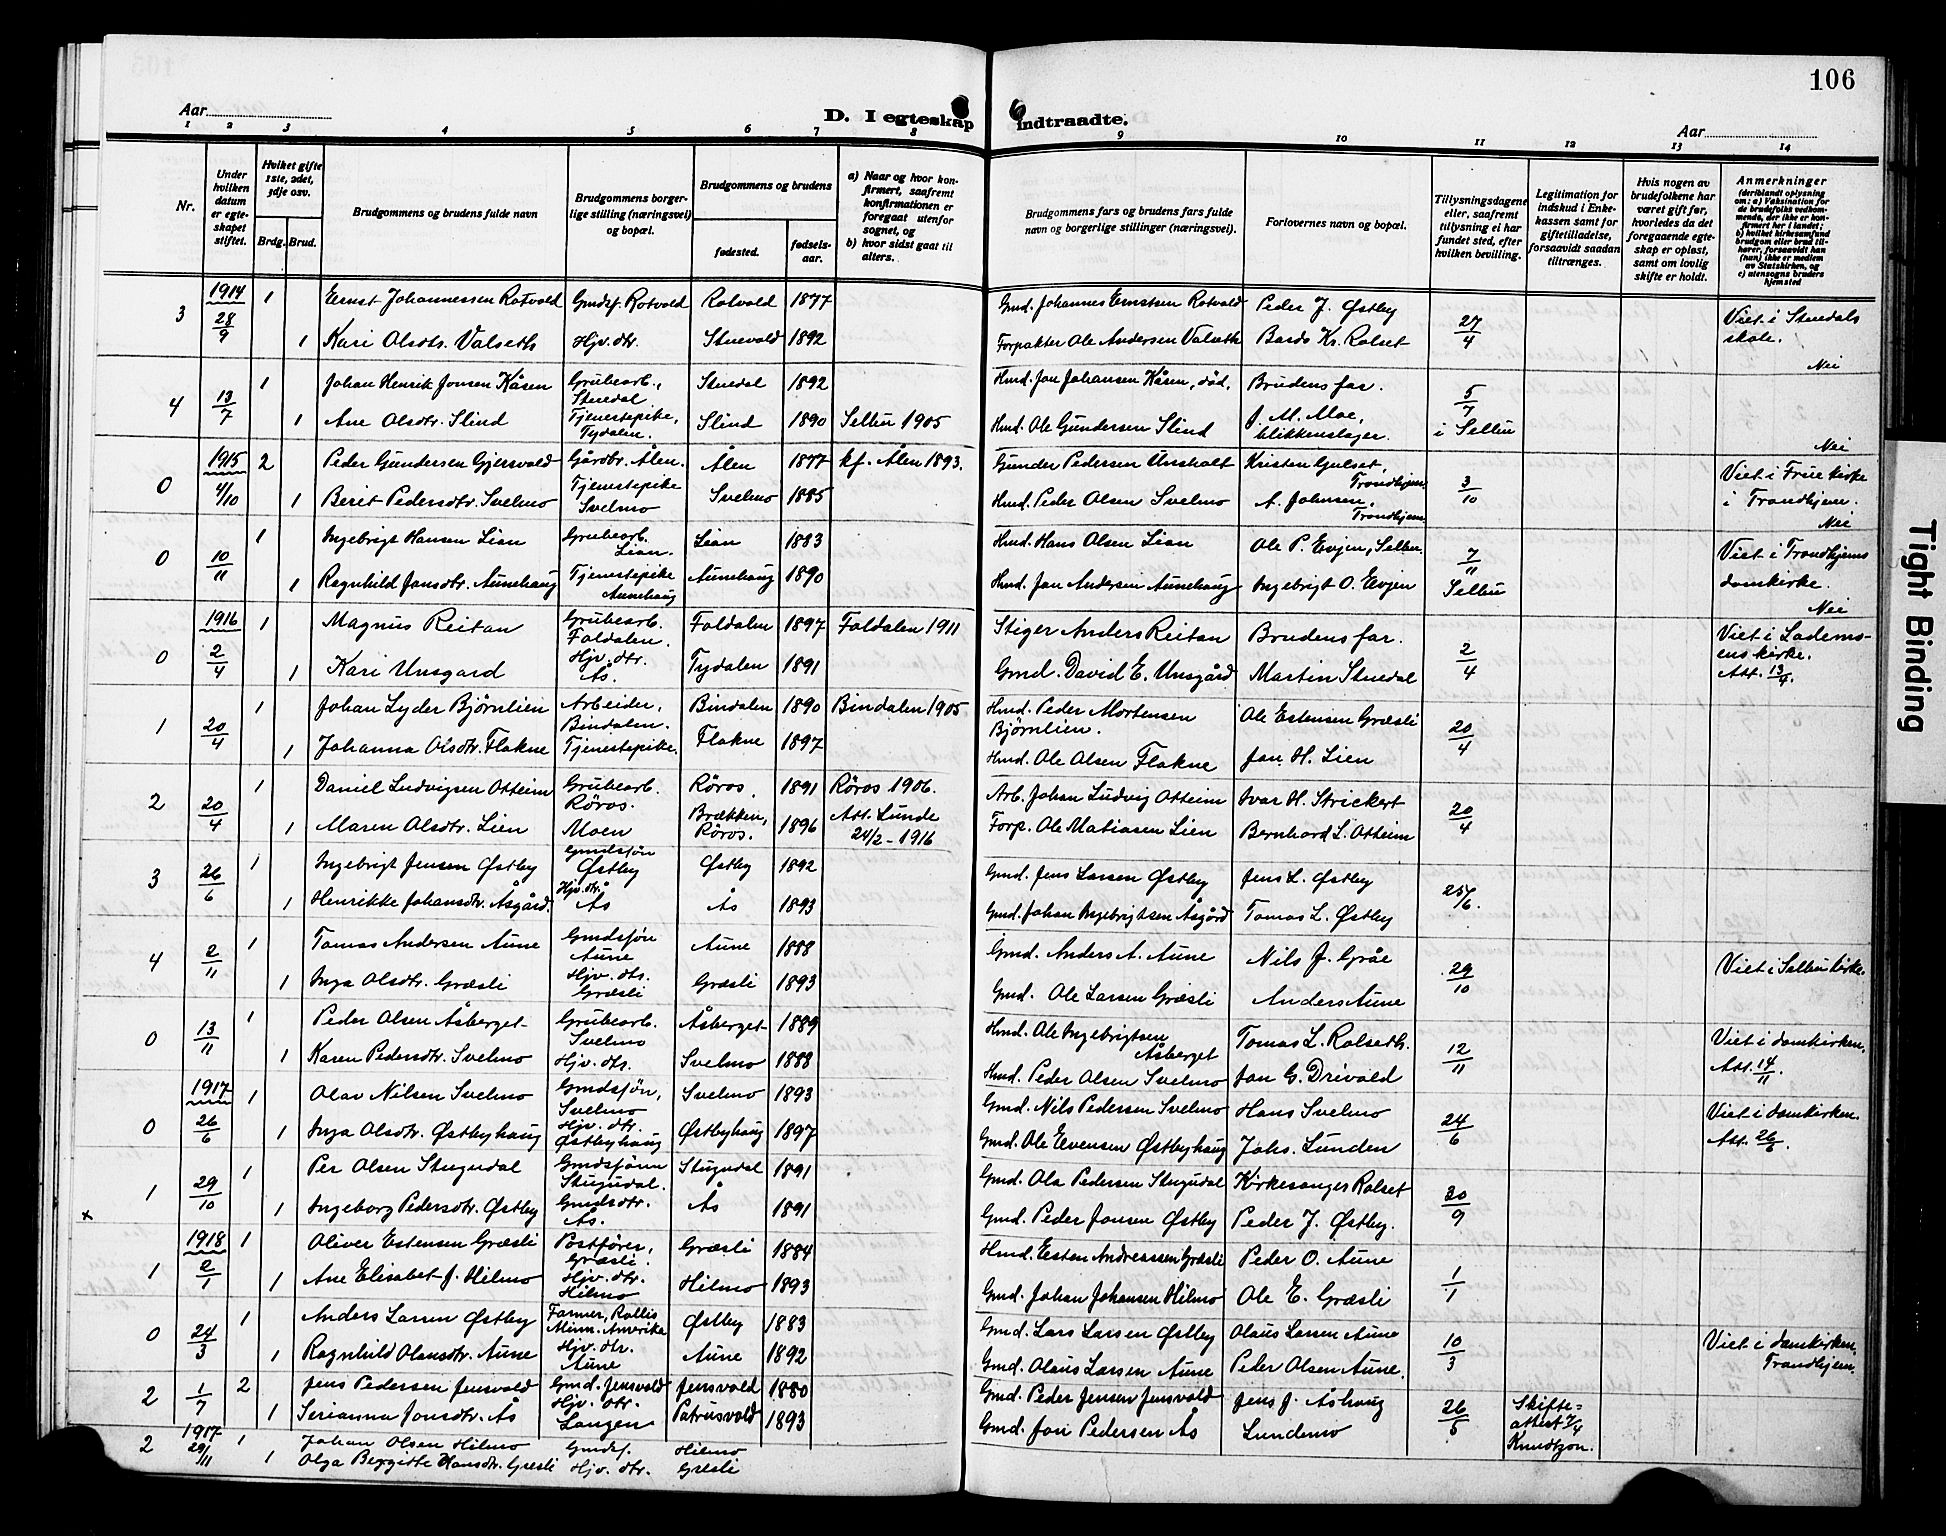 106
Aar
D. I egteskap indtraadte.
Aar
1 2 3 4 5 6 7 8 9 10 11 12 13 14
Nr.
Under hvilken datum er egteskapet stiftet.
Hvilket gifte 1ste, 2det, 3dje osv.
Brdg. Brud.
Brudgommens og brudens fulde navn
Brudgommens borgerlige stilling (næringsvei) og bopæl.
Brudgommens og brudens
fødested.
fødselsaar.
a) Naar og hvor konfirmert, saafremt konfirmationen er foregaat utenfor sognet, og
b) hvor sidst gaat til alters.
Brudgommens fars og brudens fars fulde navn og borgerlige stillinger (næringsvei).
Forlovernes navn og bopæl.
Tillysningsdagene eller, saafremt tillysning ei har fundet sted, efter hvilken bevilling.
Legitimation for indskud i Enkekassen samt for giftetilladelse, forsaavidt saadan tiltrænges.
Hvis nogen av brudefolkene har været gift før, hvorledes da det foregaaende egteskap er opløst, samt om lovlig skifte er holdt.
Anmerkninger (deriblandt oplysning om: a) Vaksination for de brudefolks vedkommende, der ikke er konfirmert her i landet; b) hvilket kirkesamfund brudgom eller brud tilhører, forsaavidt han (hun) ikke er medlem av Statskirken, og c) utensogns bruders hjemsted
3 1914 28/9 1 Ernst Johannessen Rotvold Gmdsf. Rotvold Rotvold 1877 Gmd. Johannes Ernstsen Rotvold Peder J. Østby 27/4 Viet i Stuedals skole.
1 Kari Olsdtr. Valseth Hjv. dtr. Stuevold 1892 Forpakter Ole Andersen Valseth Bardo Kr. Rolset
4 13/7 1 Johan Henrik Jonsen Kåsen Grubearb., Stuedal Stuedal 1892 Hmd. Jon Johansen Kåsen, død. Brudens far. 5/7 i Selbu Nei
1 Ane Olsdtr. Slind Tjenestepike, Tydalen. Slind 1890 Selbu 1905 Hmd. Ole Gundersen Slind J. M. Moe, blikkenslager.
0 1915 4/10 2 Peder Gundersen Gjersvold Gårdbr. Ålen. Ålen 1877 kf. Ålen 1893. Gunder Pedersen Unsholt Kristen Gulset, Trondhjem 3/10 Nei Viet i Frue kirke i Trondhjem.
1 Berit Pedersdtr. Svelmo Tjenestepike Svelmo Svelmo 1885 Hmd. Peder Olsen Svelmo A. Johnsen, Trondhjem
0 10/11 1 Ingebrigt Hansen Lian Grubearb. Lian. Lian 1883 Hmd. Hans Olsen Lian Ole P. Evjen, Selbu. 7/11 Selbu Nei Viet i Trondhjems domkirke.
1 Ragnhild Jonsdtr. Aunehaug Tjenestepike Aunehaug Aunehaug 1890 Hmd. Jon Andersen Aunehaug Ingebrigt O. Evjen
0 1916 2/4 1 Magnus Reitan Grubearb. Foldalen. Foldalen 1897 Foldalen 1911 Stiger Anders Reitan Brudens far. 2/4 Nei Viet i Lademoens kirke. Att. 13/4.
1 Kari Unsgard Hjv. dtr. Ås. Tydalen 1891 Gmd. David E. Unsgård Martin Stuedal
1 20/4 1 Johan Lyder Bjørnlien Arbeider, Bindalen. Bindalen 1890 Bindalen 1905 Hmd. Peder Mortensen Bjørnlien. Ole Estensen Græsli 20/4
1 Johanna Olsdtr. Flakne Tjenestepike. Flakne 1897 Hmd. Ole Olsen Flakne Jon H. Lien
2 20/4 1 Daniel Ludvigsen Otteim Grubearb. Røros. Røros. 1891 Røros 1906. Arb. Johan Ludvig Otteim Ivar H. Strickert 20/4
1 Maren Olsdtr. Lien Moen Brækken, Røros. 1896 Att. Lunde 24/2 - 1916 Forp. Ole Matiasen Lien Bernhard L. Otteim
3 26/6 1 Ingebrigt Jensen Østby Gmdsføn Østby Østby 1892 Gmd. Jens Larsen Østby Jens L. Østby 25/6.
1 Henrikke Johansdtr. Åsgård. Hjv. dtr. Ås Ås 1893 Gmd. Johan Ingebrigtsen Åsgård Tomas L. Østby
4 2/11 1 Tomas Andersen Aune Gmdsføn Aune Aune 1888 Gmd. Anders A. Aune Nils J. Gråe 29/10 Viet i Selbu kirke.
1 Inga Olsdtr. Græsli Hjv. dtr. Græsli Græsli 1893 Gmd. Ole Larsen Græsli Anders Aune
0 13/11 1 Peder Olsen Åsberget Grubearb. Svelmo Åsberget 1889 Hmd. Ole Ingebrigtsen Åsberget Tomas L. Rolseth. 12/11 Viet i domkirken. Att. 14/11.
1 Karen Pedersdtr. Svelmo Hjv. dtr. Svelmo 1888 Hmd. Peder Olsen Svelmo Jon G. Drivold
0 1917 26/6 1 Olav Nilsen Svelmo Gmdsføn, Svelmo Svelmo 1893 Gmd. Nils Pedersen Svelmo Hans Svelmo 24/6 Viet i domkirken. Att. 26/6.
1 Inga Olsdtr. Østbyhaug Hjv. dtr. Østbyhaug Østbyhaug 1897 Gmd. Ole Evensen Østbyhaug Johs. Lunden
1 29/10 1 Per Olsen Stugudal Gmdsfønn Stugudal. Stugudal 1891 Gmd. Ola Pedersen Stugudal Kirkesanger Rolset 30/9
x 1 Ingeborg Pedersdtr. Østby Gmdsdtr. Ås. Ås 1891 Gmd. Peder Jonsen Østby Peder J. Østby.
1 1918 2/1 1 Oliver Estensen Græsli Postfører, Græsli. Græsli 1884 Hmd. Esten Andreassen Græsli Peder O. Aune 1/1
1 Ane Elisabet J. Hilmo Hjv. dtr. Hilmo Hilmo 1893 Gmd. Johan Johansen Hilmo Ole E. Græsli
0 24/3 1 Anders Larsen Østby Farmer, Rollis Minn. Amerika Østby 1883 Gmd. Lars Larsen Østby Olaus Larsen Aune 10/3 Viet i domkirken, Trondhjem.
1 Ragnhild Olausdtr. Aune Hjv. dtr. Aune Aune 1892 Gmd. Olaus Larsen Aune Peder Olsen Aune.
2 1/7 2 Jens Pedersen Jensvold Gmd. Jensvold Jensvold 1880 Gmd. Peder Jensen Jensvold Jens J. Åshaug 26/5 Skifteattest 7/4 Knudtzon.
1 Serianna Jonsdtr. Ås Hjv. dtr. Langen Patrusvold 1893 Gmd. Jon Pedersen Ås Lundemo
2 1917 29/11 1 Johan Olsen Hilmo Gmdsf. Hilmo
1 Olga Bergitte Hansdtr. Græsli Hjv. dtr. Græsli
Tight Binding